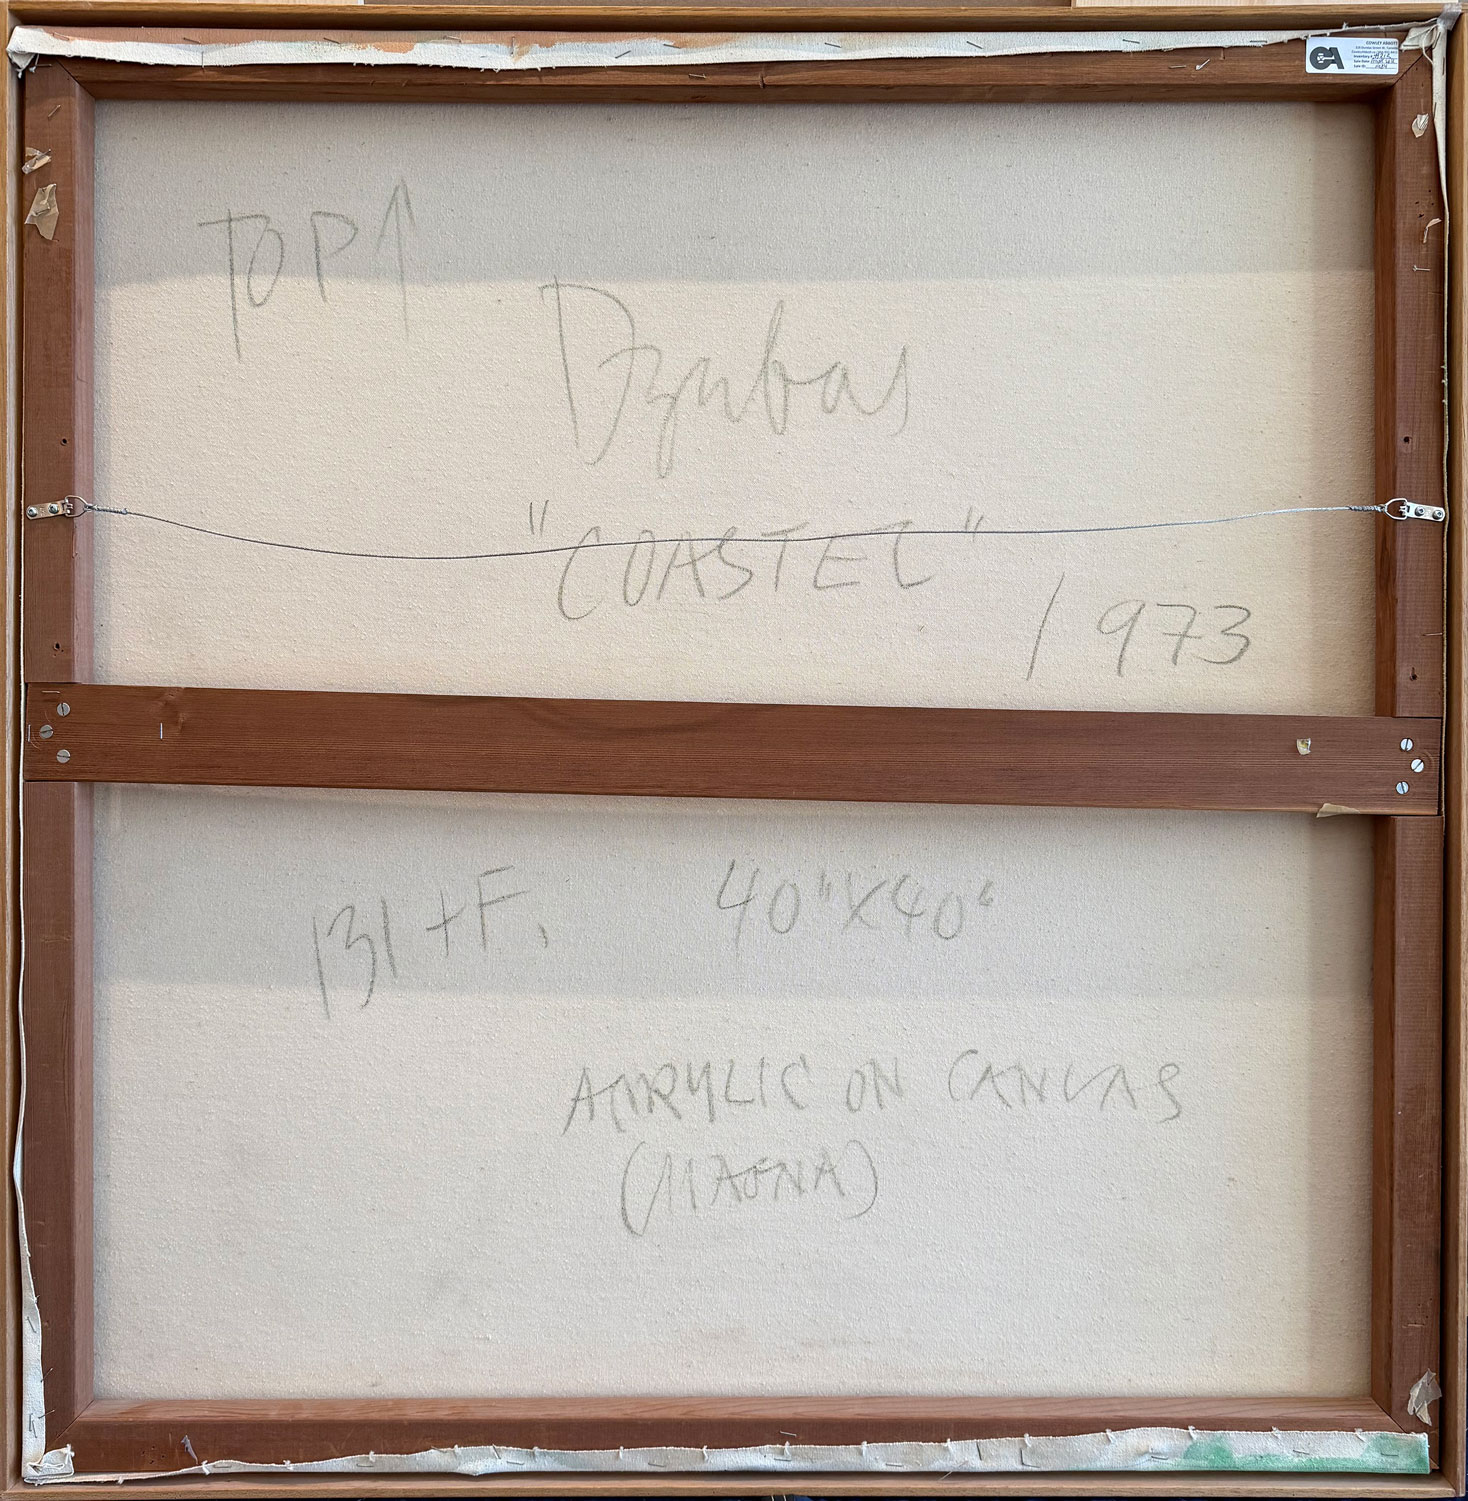 COWLEY ABBOTT
TOP↑
Dzubas
"COASTEL"
1973
BI+F. 40"X40"
ACRYLIC ON CANVAS
(MAGNA)